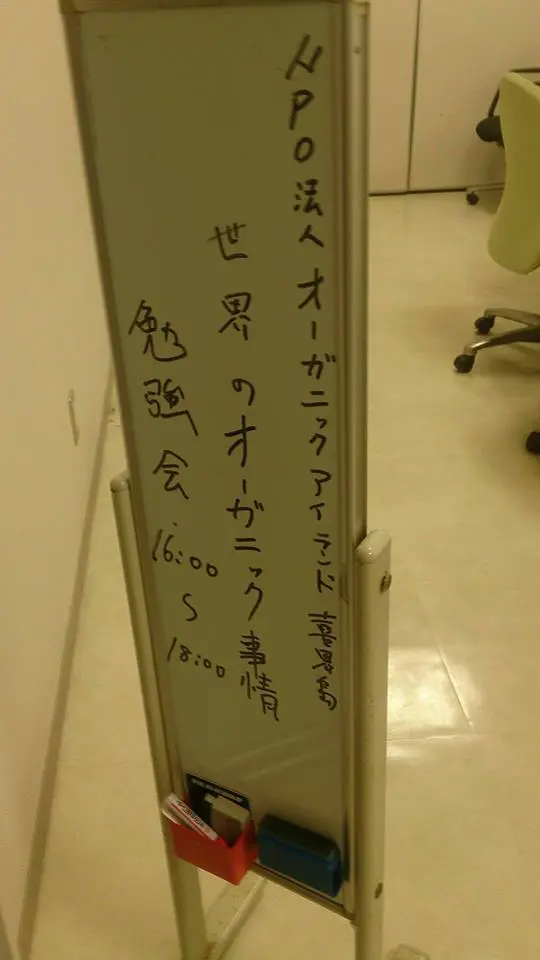 NPO法人オーガニックアイランド喜界島
世界のオーガニック事情
勉強会 16:00
〜
18:00